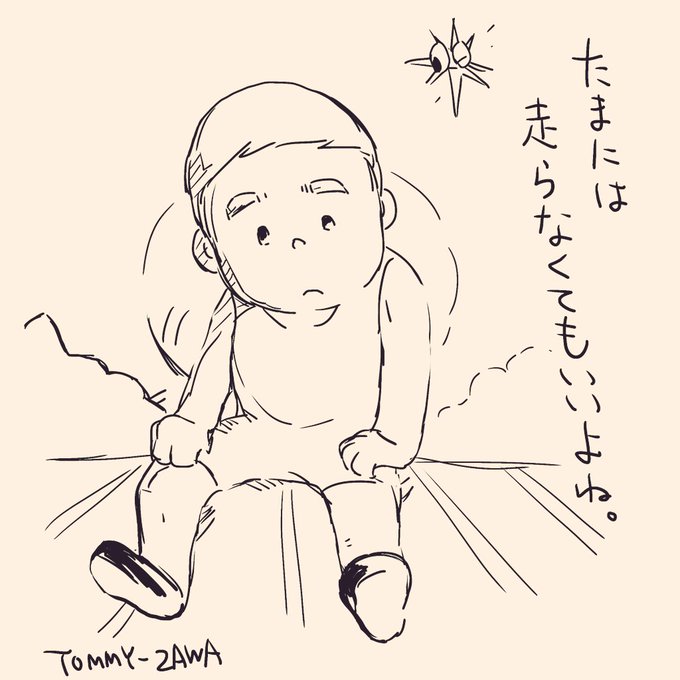 たまには
走らなくてもいいよね。
TOMMY-ZAWA